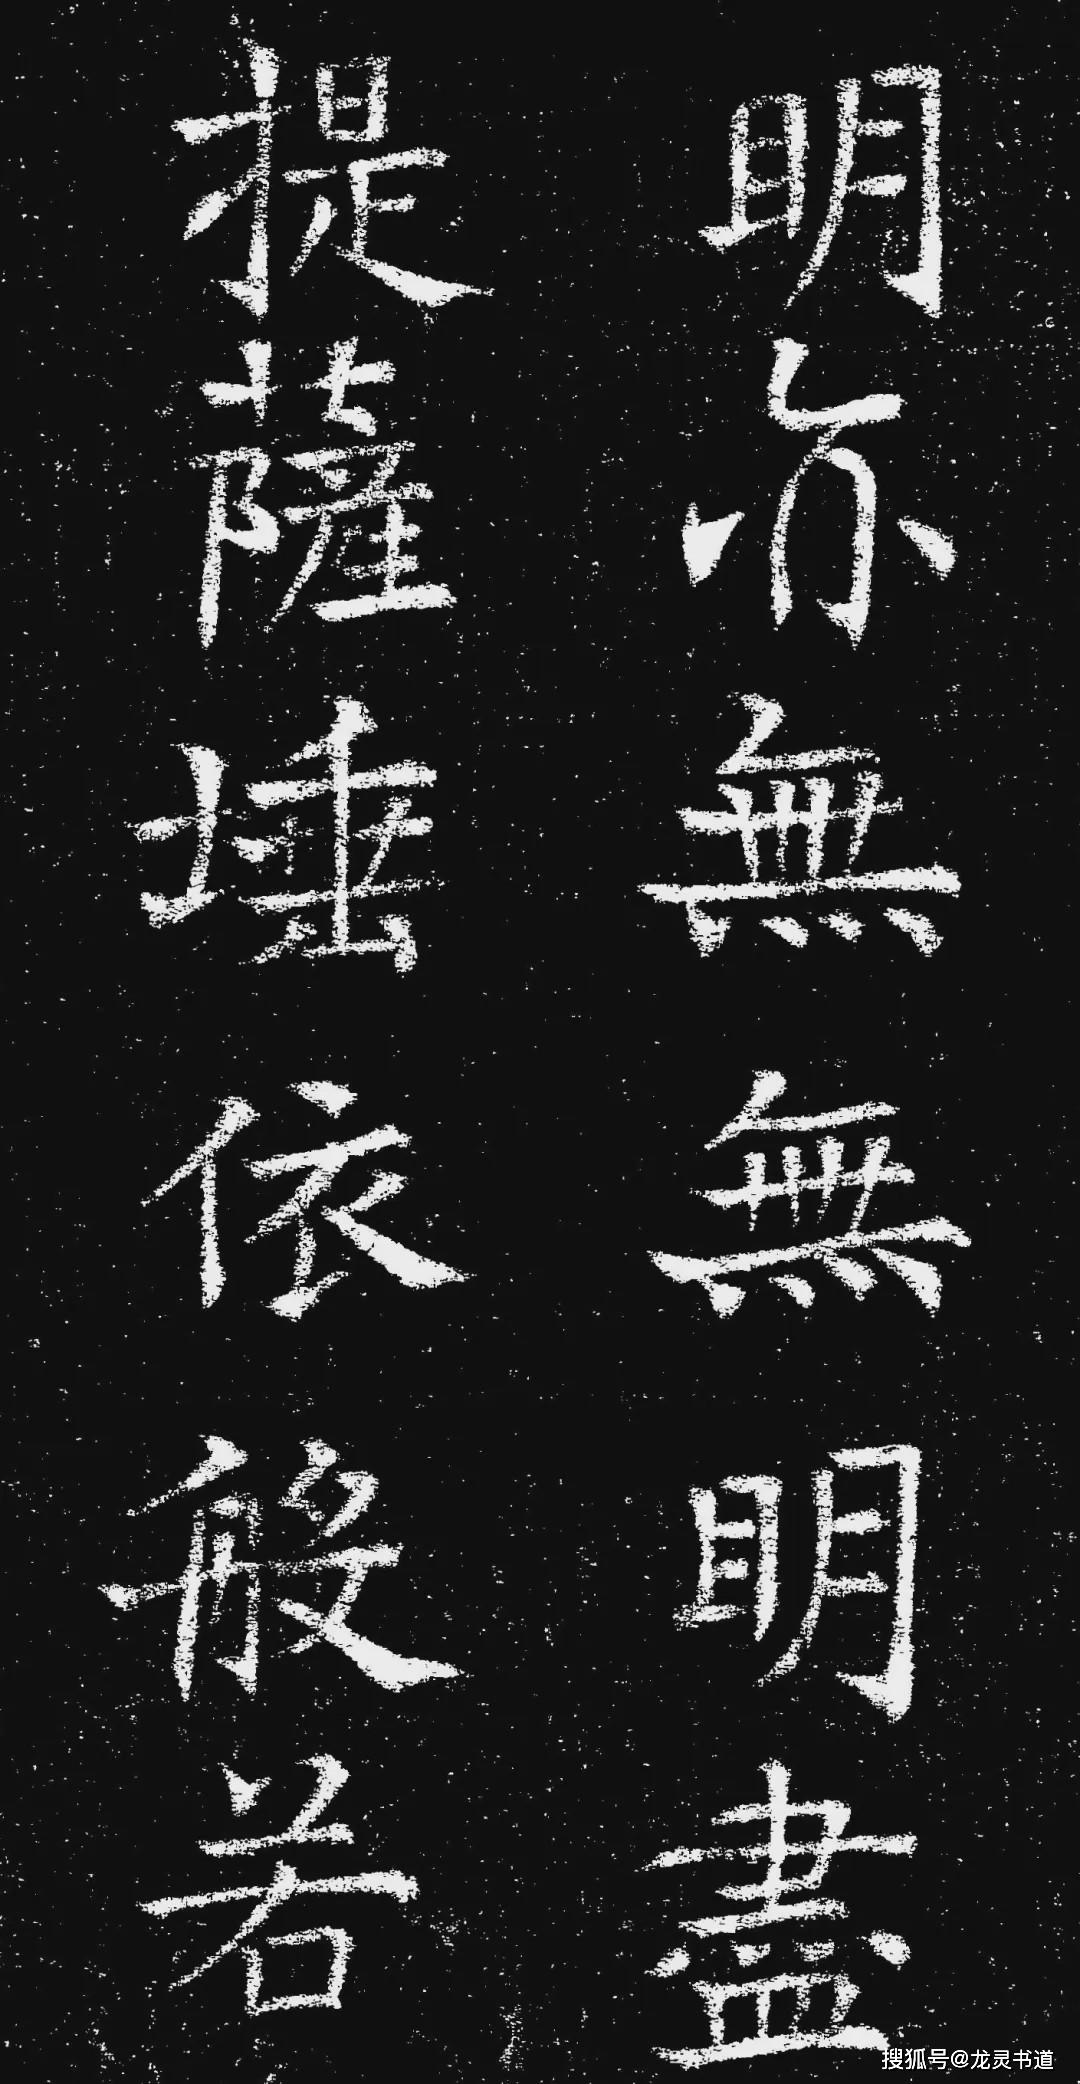 明亦無無明盡
提薩埵依般若
搜狐号@龙灵书道